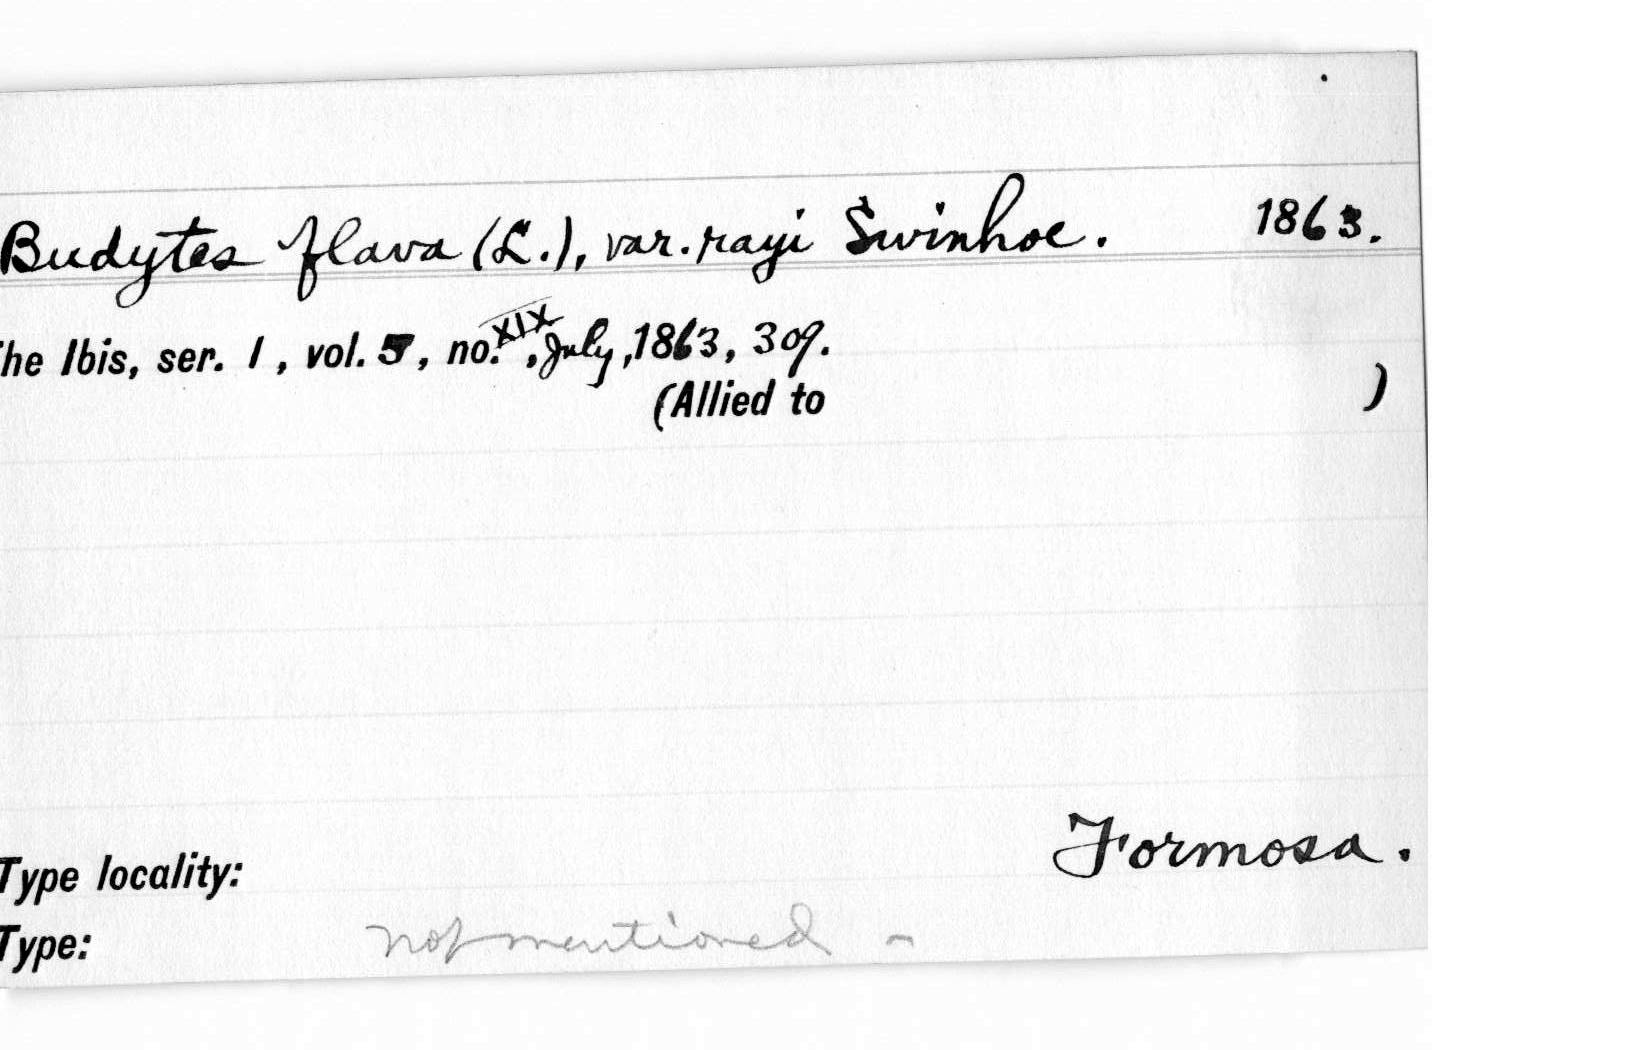 Budytes flava (L.), var. rayi Swinhoe. 1863.
he Ibis, ser. 1, vol. 5, no. XIX, July, 1863, 309.
(Allied to )
Type locality: Formosa.
Type: not mentioned -